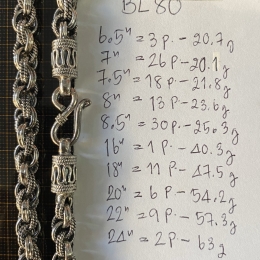 BL80
6.5" = 3 P. - 20.7 g
7" = 26 P - 20.1 g
7.5" = 18 P - 21.8 g
8" = 13 P - 23.6 g
8.5" = 30 P - 25.3 g
16" = 1 P - 40.3 g
18" = 11 P - 47.5 g
20" = 6 P - 54.2 g
22" = 9 P. - 57.3 g
24" = 2 P - 63 g